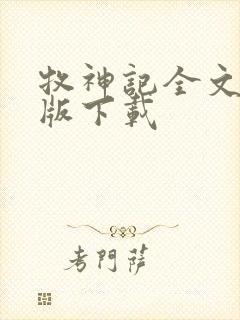 牧神記全文
版下載
考門薩